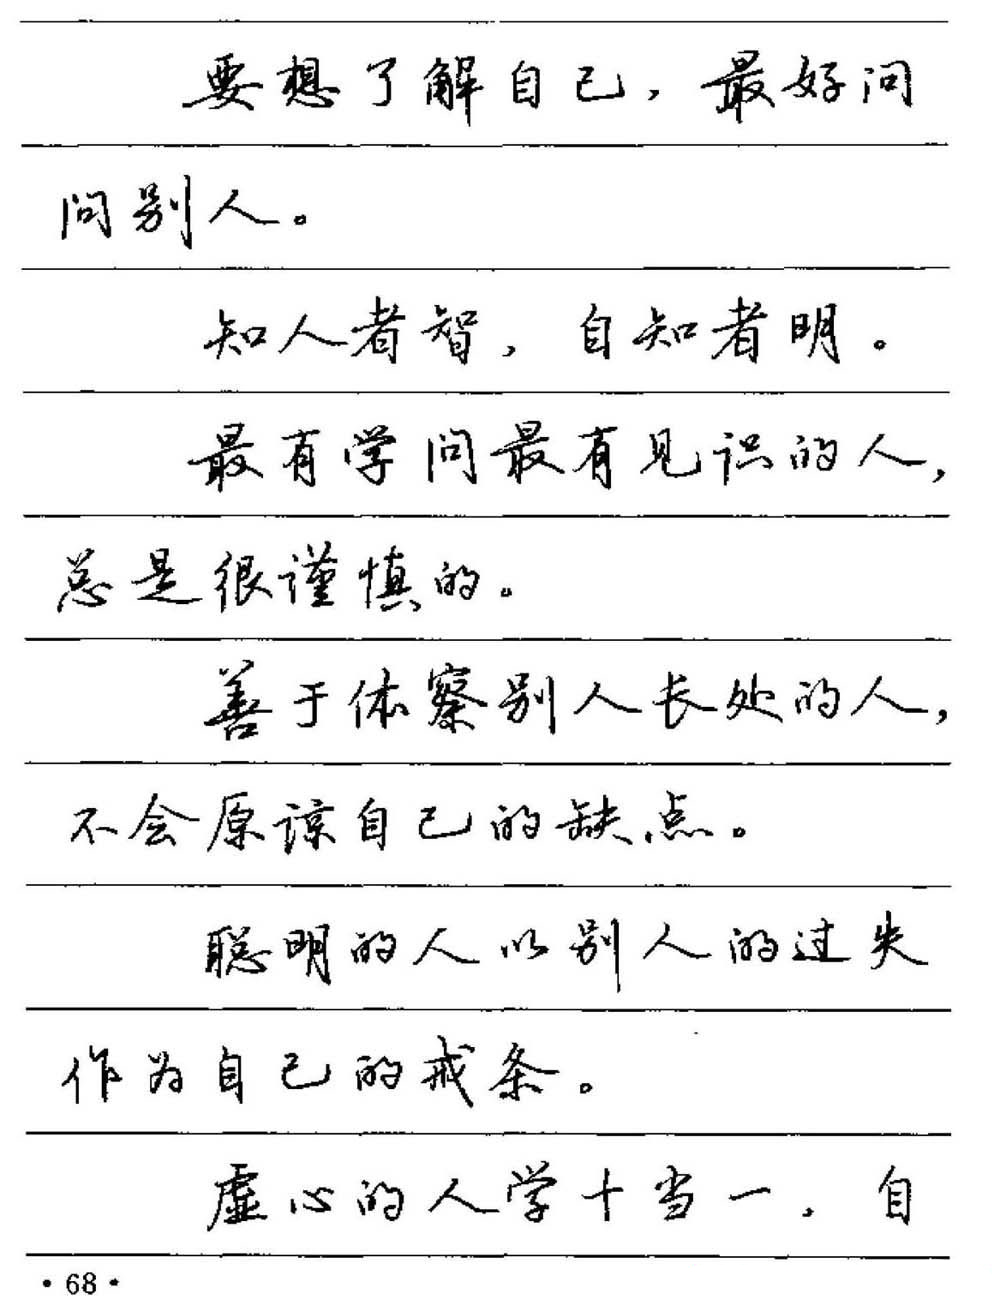 要想了解自己，最好问
问别人。
知人者智，自知者明。
最有学问最有见识的人，
总是很谨慎的。
善于体察别人长处的人，
不会原谅自己的缺点。
聪明的人以别人的过失
作为自己的戒条。
虚心的人学十当一，自
·68·